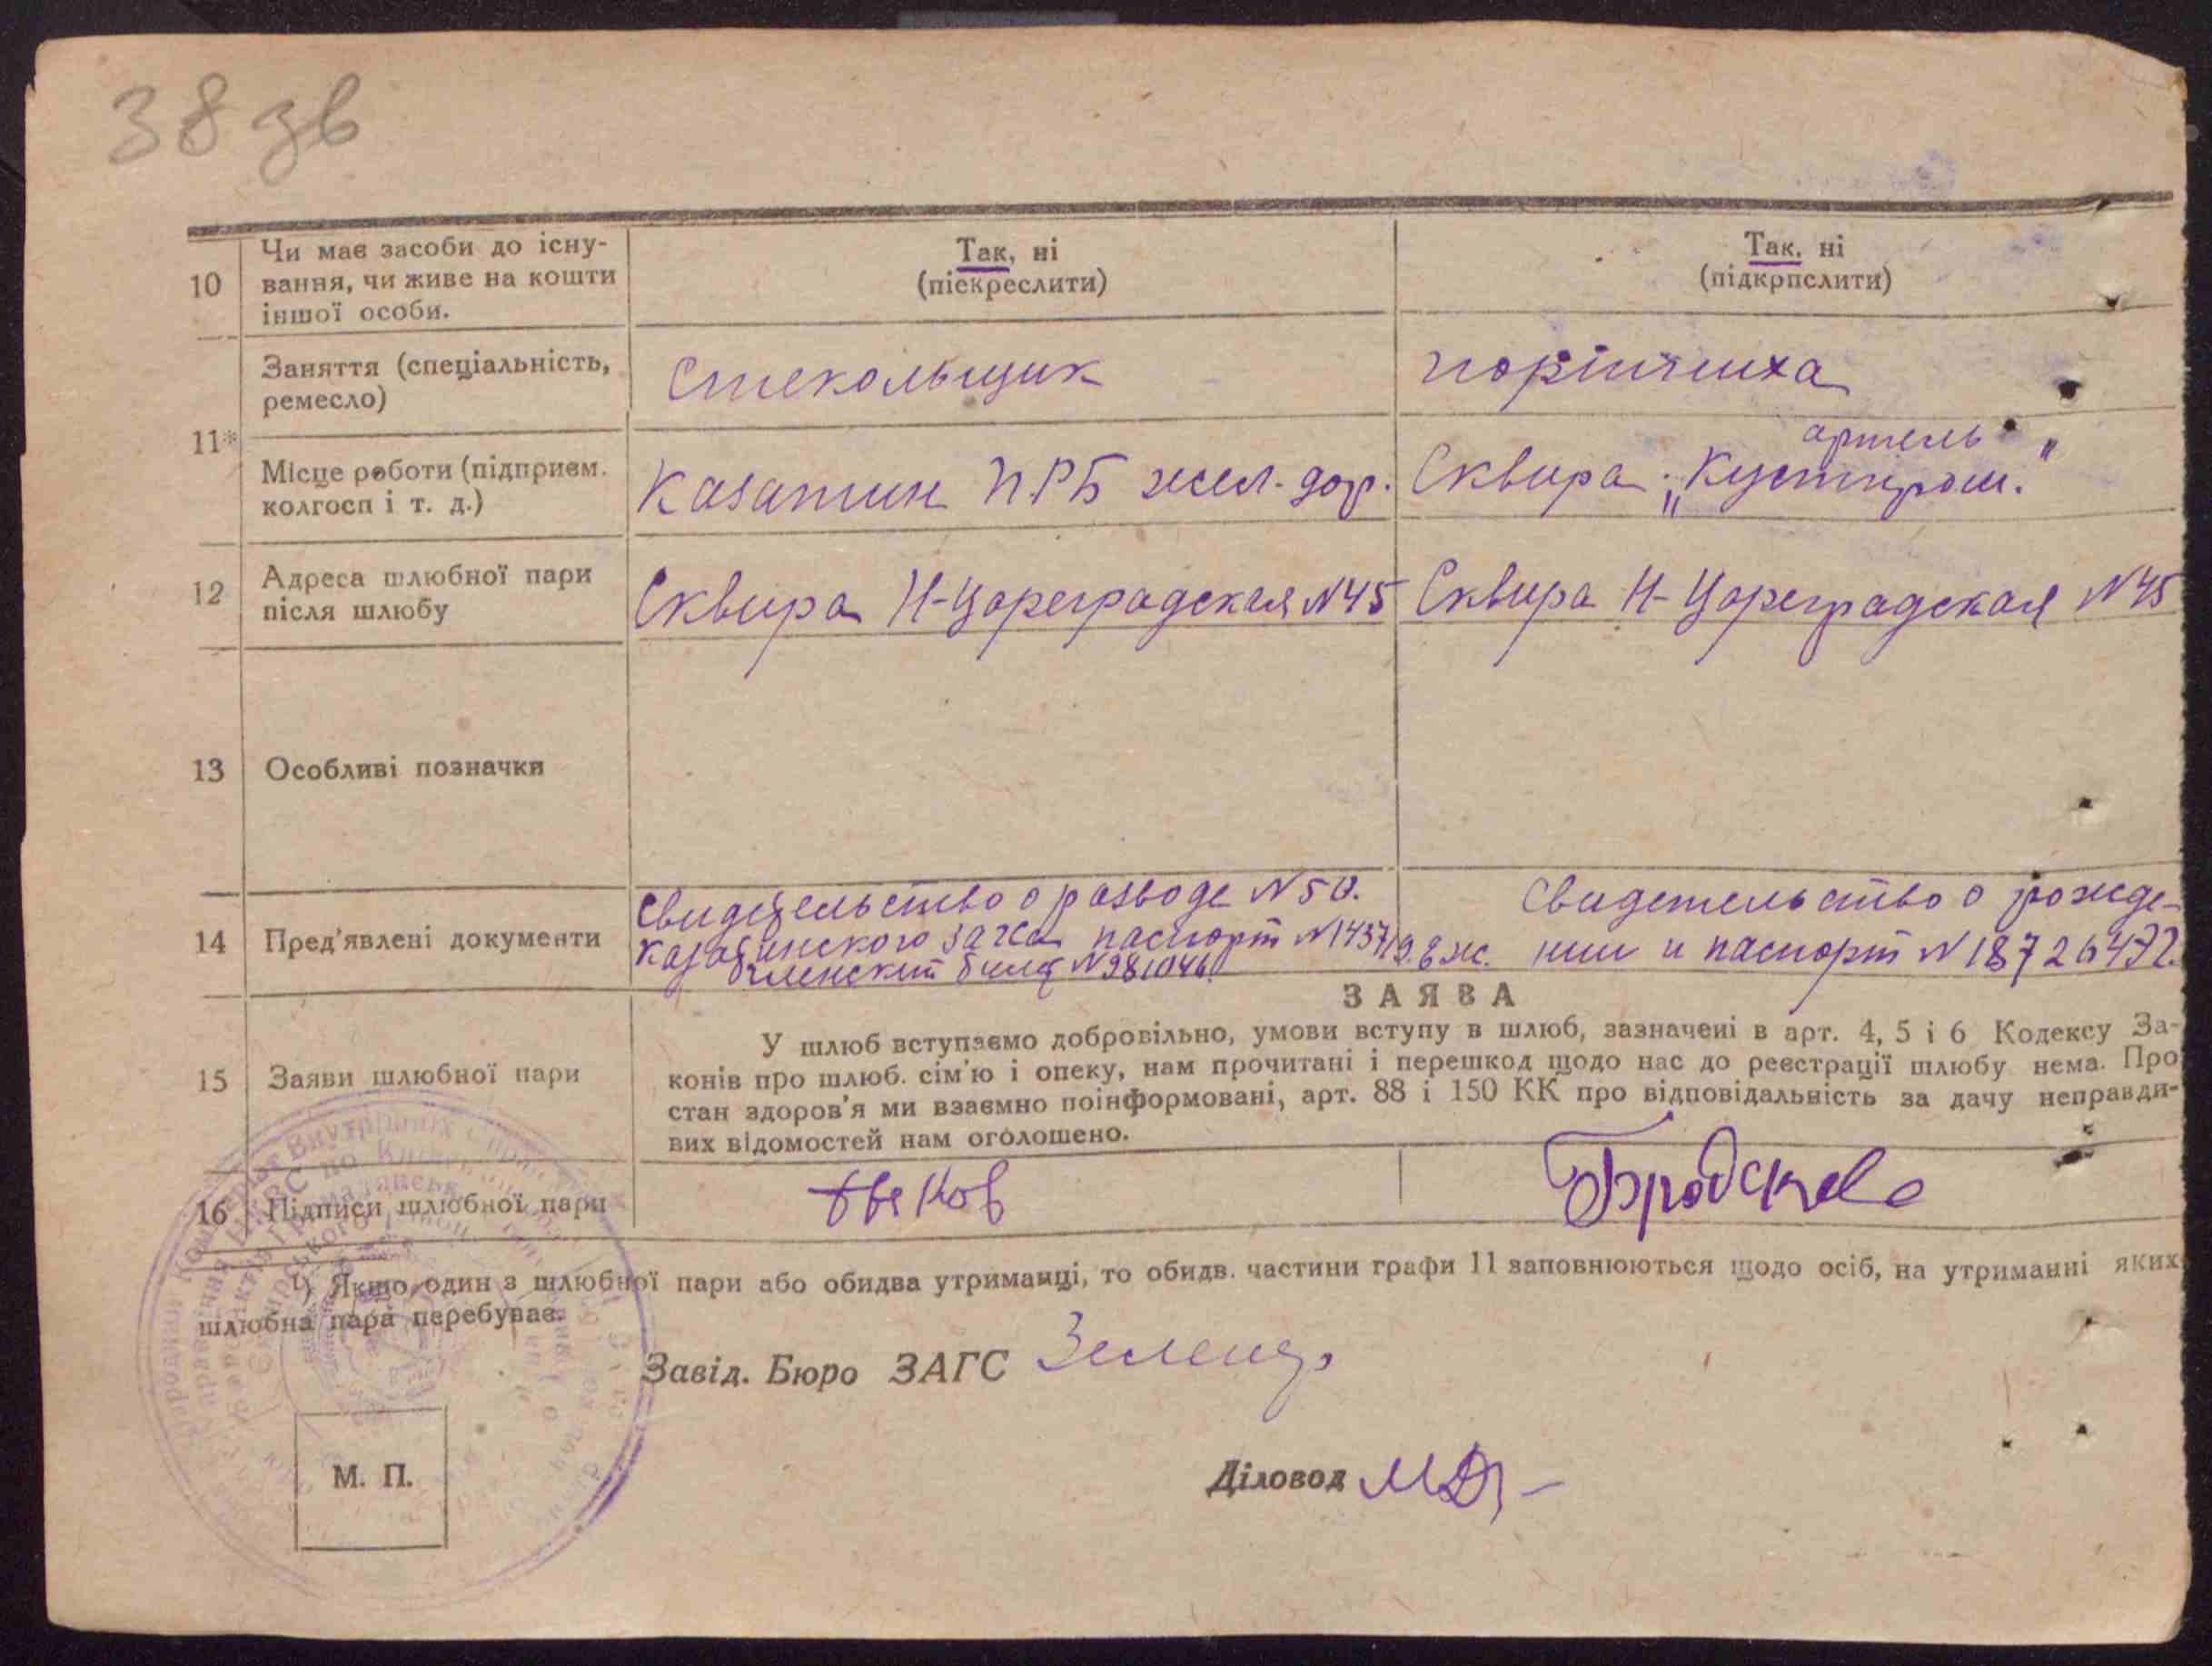 38 зв
10
Чи має засоби до існу-
вання, чи живе на кошти
іншої особи.
Так, ні
(піскреслити)
Так. ні
(підкрпслити)
11*
Заняття (спеціальність,
ремесло)
Стекольщик
портниха
Місце роботи (підприєм.
колгосп і т. д.)
Казатин П.Р.Б жел-дор.
артель
Сквира „Кустпром."
12
Адреса шлюбної пари
після шлюбу
Сквира Н-Цореградская N45
Сквира Н-Цореградская N45
13
Особливі позначки
14
Пред'явлені документи
Свидетельство о разводе N50.
Казатинского загса паспорт N
членский билет N981046
Свидетельство о рожде-
нии и паспорт N
15
Заяви шлюбної пари
ЗАЯВА
У шлюб вступаємо добровільно, умови вступу в шлюб, зазначені в арт. 4, 5 і 6 Кодексу За-
конів про шлюб. сім'ю і опеку, нам прочитані і перешкод щодо нас до реєстрації шлюбу нема. Про
стан здоров'я ми взаємно поінформовані, арт. 88 і 150 КК про відповідальність за дачу неправди-
вих відомостей нам оголошено.
16
Підписи шлюбної пари
Бродская
¹) Якщо один з шлюбної пари або обидва утриманці, то обидв. частини графи 11 заповнюються щодо осіб, на утриманні яких
шлюбна пара перебуває.
Завід. Бюро ЗАГС
М. П.
Діловод